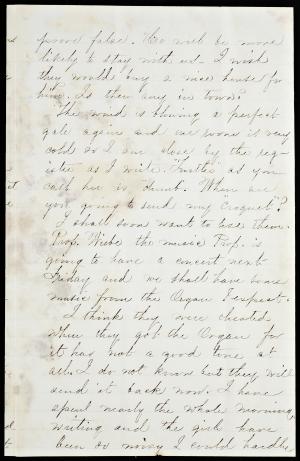 prove false. He will be more
likely to stay with us. I wish
they would buy a nice house for
him. Is there any in town?
The wind is blowing a perfect
gale again and our room is very
cold so I am close by the reg-
ister as I write. "Turtle" as you
call her is debut. When are
you going to send my Croquet?
I shall soon want to use them.
Prof. Wiebe the music Prof. is
going to have a concert next
Friday and we shall have some
music from the Organ I expect.
I think they were cheated
when they got the Organ for
it has not a good tone at
all. I do not know but they will
send it back now. I have
spent nearly the whole morning
writing and the girls have
been so noisy I could hardly